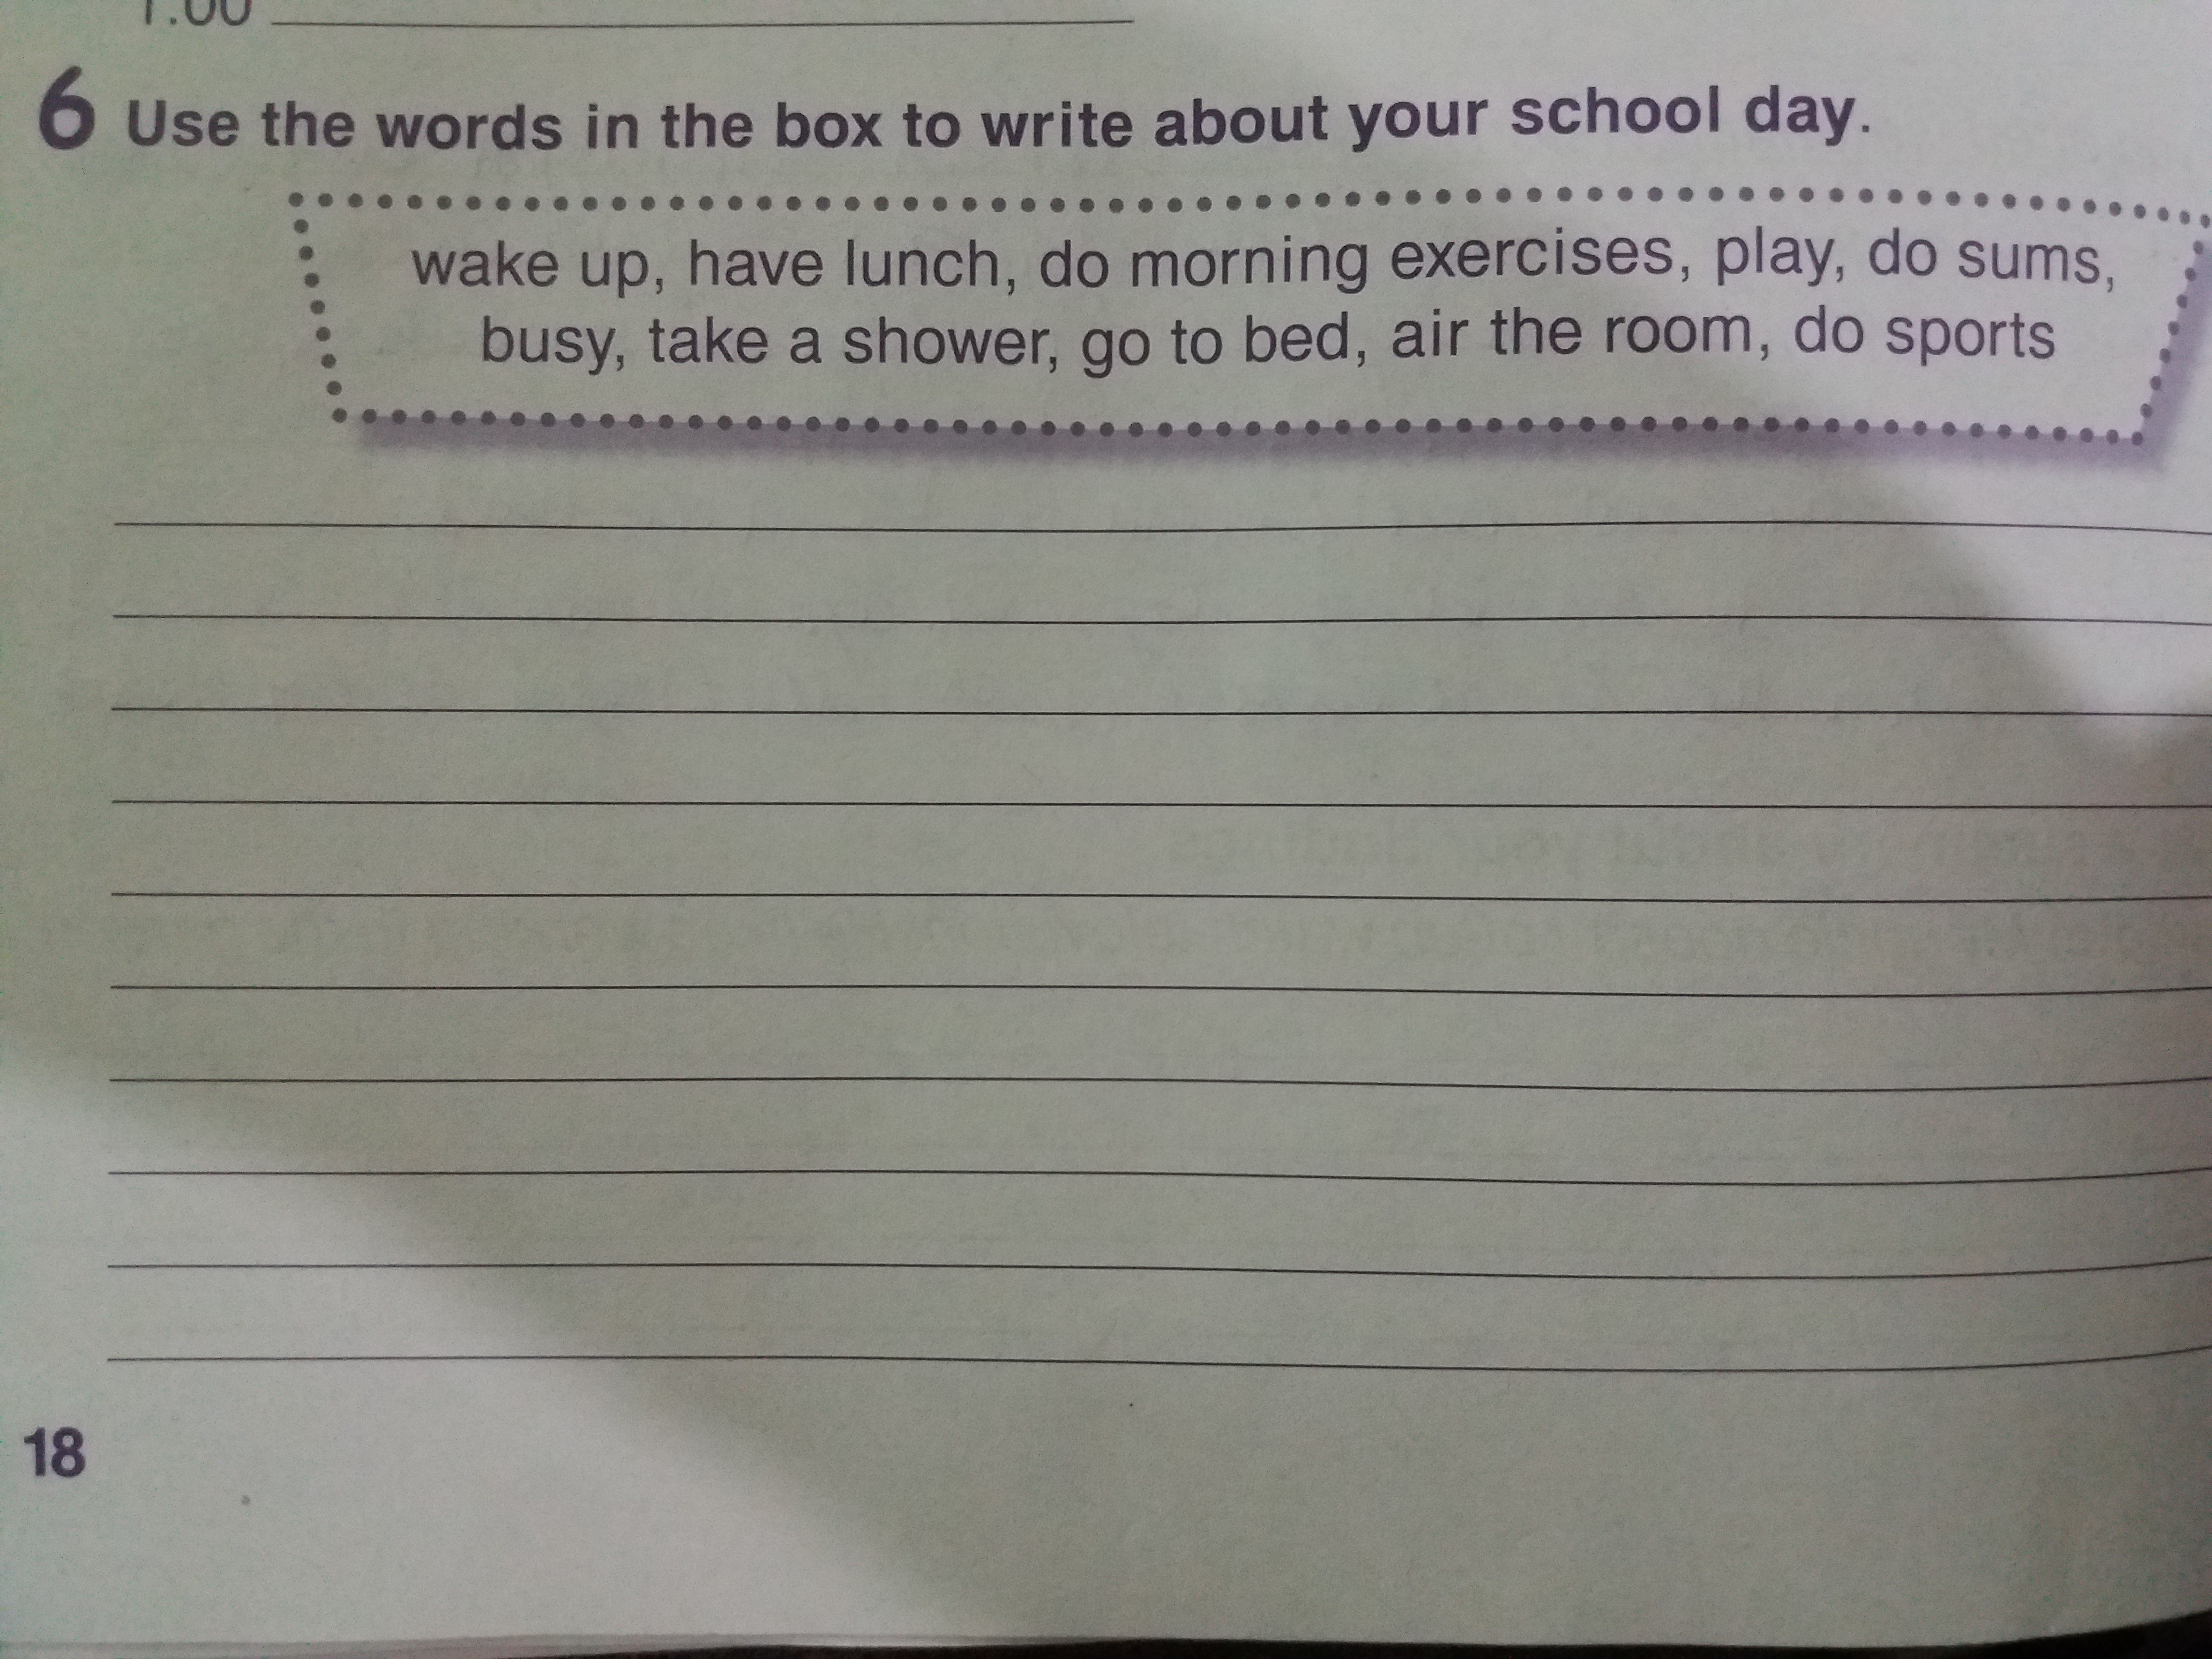 1.00
6 Use the words in the box to write about your school day.
wake up, have lunch, do morning exercises, play, do sums,
busy, take a shower, go to bed, air the room, do sports
18